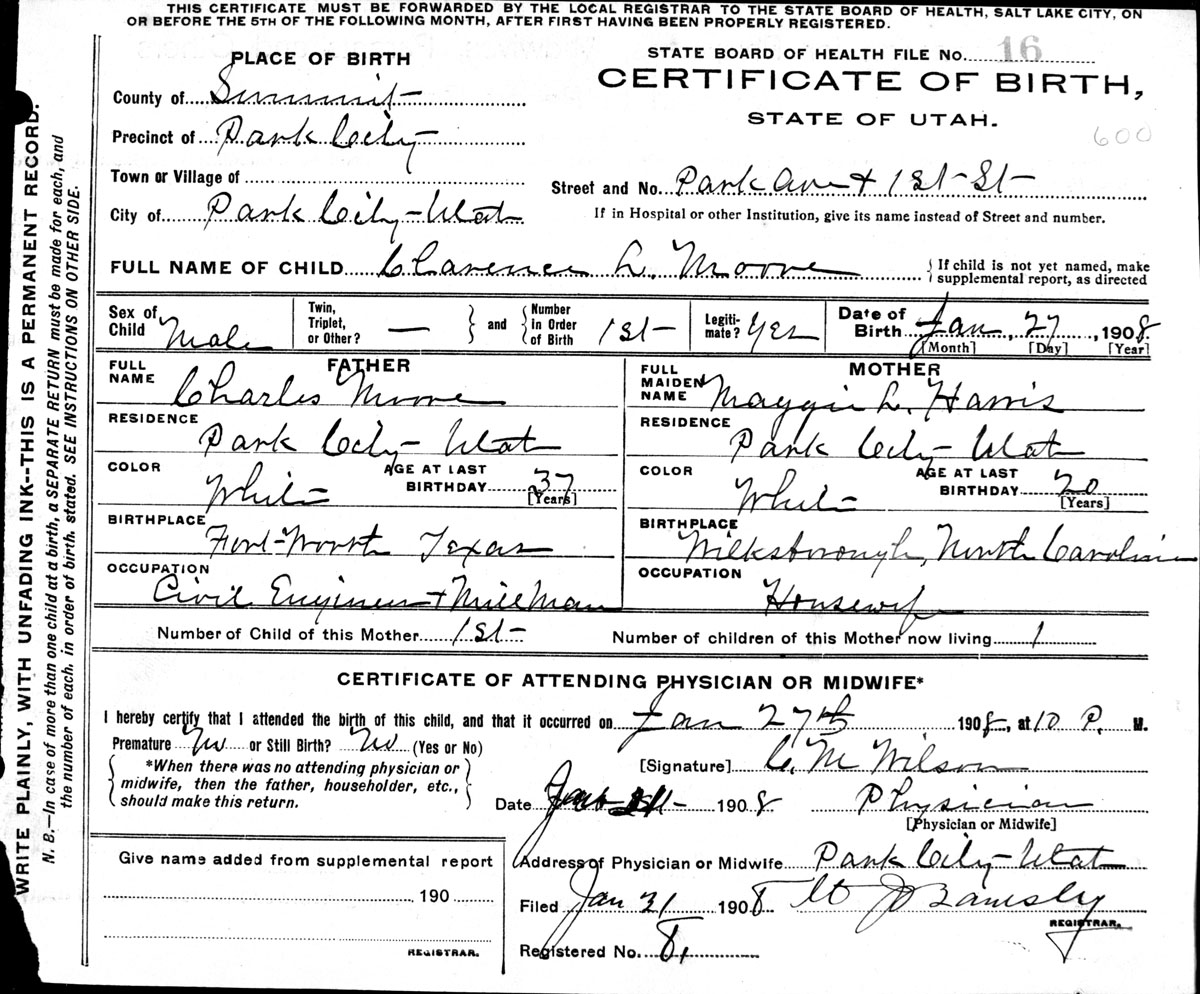 THIS CERTIFICATE MUST BE FORWARDED BY THE LOCAL REGISTRAR TO THE STATE BOARD OF HEALTH, SALT LAKE CITY, ON
OR BEFORE THE 5TH OF THE FOLLOWING MONTH, AFTER FIRST HAVING BEEN PROPERLY REGISTERED.
WRITE PLAINLY, WITH UNFADING INK--THIS IS A PERMANENT RECORD.
N. B.—In case of more than one child at a birth, a SEPARATE RETURN must be made for each, and
the number of each, in order of birth, stated. SEE INSTRUCTIONS ON OTHER SIDE.
PLACE OF BIRTH
STATE BOARD OF HEALTH FILE No. 16
CERTIFICATE OF BIRTH,
STATE OF UTAH.
600
County of Summit
Precinct of Park City
Town or Village of
Street and No. Park Ave + 1st St
City of Park City Utah
If in Hospital or other Institution, give its name instead of Street and number.
FULL NAME OF CHILD Clarence L. Moore
{If child is not yet named, make
supplemental report, as directed
Sex of Child Male
Twin, Triplet, or Other? —
} and { Number in Order of Birth 1st
Legiti- mate? Yes
Date of Birth Jan 27, 1908
[Month] [Day] [Year]
FATHER
FULL NAME Charles Moore
RESIDENCE
Park City Utah
COLOR White
AGE AT LAST BIRTHDAY 37 [Years]
BIRTHPLACE
Fort Worth Texas
OCCUPATION
Civil Engineer + Mill Man
MOTHER
FULL MAIDEN NAME Maggie L. Harris
RESIDENCE
Park City Utah
COLOR White
AGE AT LAST BIRTHDAY 20 [Years]
BIRTHPLACE
Wilksborough, North Carolina
OCCUPATION
Housewife
Number of Child of this Mother 1st
Number of children of this Mother now living 1
CERTIFICATE OF ATTENDING PHYSICIAN OR MIDWIFE*
I hereby certify that I attended the birth of this child, and that it occurred on Jan 27th 1908, at 10 P. M.
Premature No or Still Birth? No (Yes or No)
{*When there was no attending physician or
midwife, then the father, householder, etc.,
should make this return.}
[Signature] C. M Wilson
Date 1908 Physician
[Physician or Midwife]
Address of Physician or Midwife Park City Utah
Filed Jan 31 1908
REGISTRAR.
Registered No. 8,
Give name added from supplemental report
190
REGISTRAR.